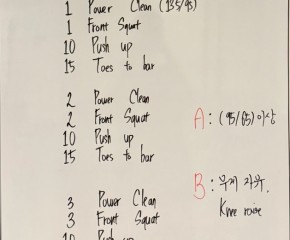 1 Power Clean (135/95)
1 Front Squat
10 Push up
15 Toes to bar
2 Power Clean
2 Front Squat
10 Push up
15 Toes to bar
3 Power Clean
3 Front Squat
10 Push up
A : (95/65) 이상
B : 무게 자유.
Knee raise